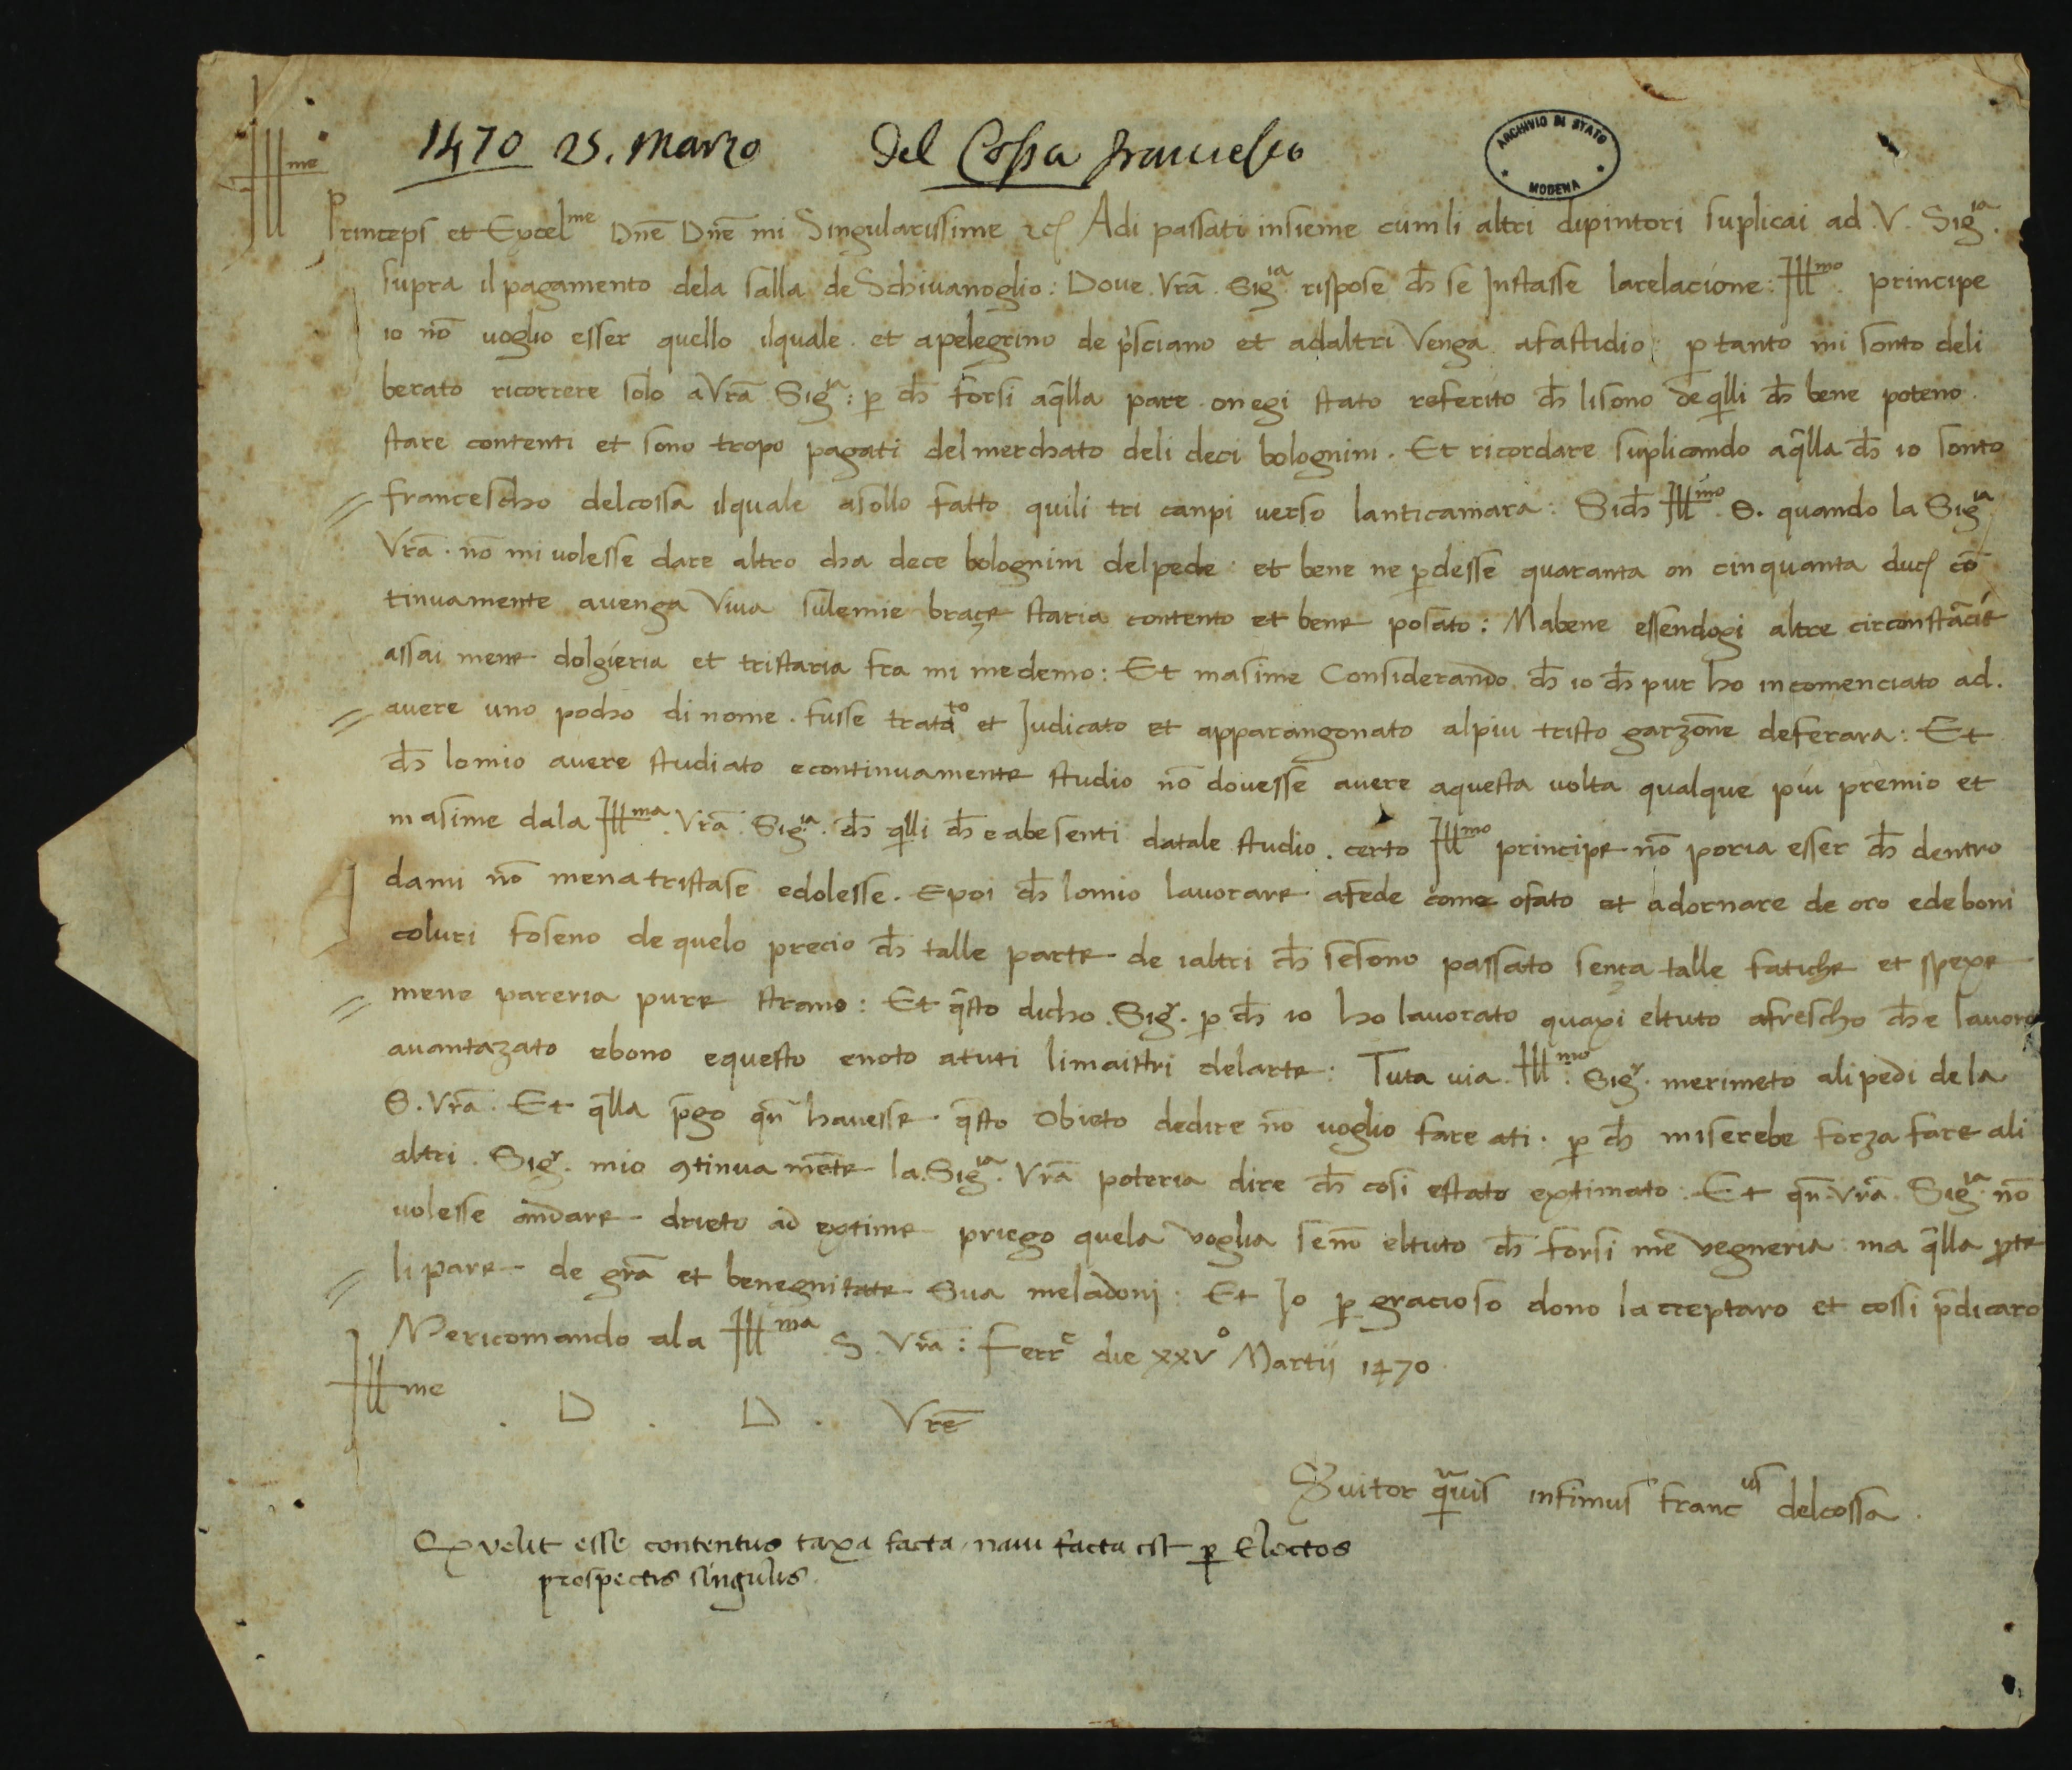 1470 25. Marzo Del Cossa Francesco
ARCHIVIO DI STATO
MODENA
Illme
Princeps et Excelme Dñe Dñe mi Singularissime &c Adi passati insieme cum li altri dipintori suplicai ad .V. Sigia.
supra il pagamento dela salla de Schiuanoglio: Doue .Vrã. Sigia rispose ch̄ se Instasse la relacione: Illmo. principe
io nõ uoglio esser quello ilquale. et a pelegrino de p̃sciano et ad altri Venga. a fastidio: p̱ tanto mi sonto deli
berato ricorrere solo a Vrã Sigia: p̱ ch̄ forsi aq̃lla pare. on egi stato referito ch̄ li sono de q̃lli ch̄ bene poteno.
stare contenti et sono tropo pagati del merchato deli deci bolognini. Et ricordare suplicando aq̃lla ch̄ io sonto
francescho del cossa il quale a sollo fatto quili tri canpi uerso lanticamara: Sich̄ Illmo. S. quando la Sigia
Vrã. nõ mi uolesse dare altro cha dece bolognini del pede: et bene ne p̱desse quaranta on cinquanta duc̃ cõ
tinuamente auenga Viua sule mie braçe staria contento et bene posato: Ma bene essendogi altre circonstãcie
assai mene dolgieria et tristaria fra mi medemo: Et masime Considerando ch̄ io ch̄ pur ho incomenciato ad.
auere uno pocho di nome. fusse tratato et Judicato et apparangonato al piu tristo garzone de ferara: Et
ch̄ lo mio auere studiato e continuamente studio nõ douesse auere a questa uolta qualque piu premio et
masime dala Illma. Vrã. Sigia. ch̄ q̃lli ch̄ e abesenti datale studio. certo Illmo principe nõ poria esser ch̄ dentro
da mi nõ mena tristase e dolesse. E poi ch̄ lo mio lauorare a fede come o fato et adornare de oro e de boni
coluri foseno de quelo precio ch̄ talle parte de i altri ch̄ se sono passato sença talle fatiche et spexe
mene pareria pure strano: Et q̃sto dicho .Sigr. p̱ ch̄ io ho lauorato quaxi el tuto a frescho ch̄ e lauoro
auantazato e bono e questo e noto a tuti li maistri delarte: Tuta uia. Illmo: Sigr. me rimeto ali pedi de la
S. Vrã. Et q̃lla p̃go qñ hauesse q̃sto obieto dedire nõ uoglio fare a ti. p̱ ch̄ mi serebe forza fare ali
altri. Sigr. mio 9tinuamẽte la Sigia. Vrã poteria dire ch̄ cosi e stato extimato: Et qñ Vrã. Sigia. nõ
uolesse andare drieto ad extime priego quela voglia se nõ el tuto ch̄ forsi me vegneria ma q̃lla p̱te
li pare de grã et benegnitate Sua me la doni: Et Jo p̱ gracioso dono la cceptaro et cossi p̃dicaro
Me ricomando ala Illma .S. Vrã: Ferrẽ die xxvo Martij 1470
Illme . D . D . Vrẽ
Suitor q̱uis infimus francus del cossa.
Q velit esse contentus taxa facta nam facta est p̱ Electos
prospectis singulis.